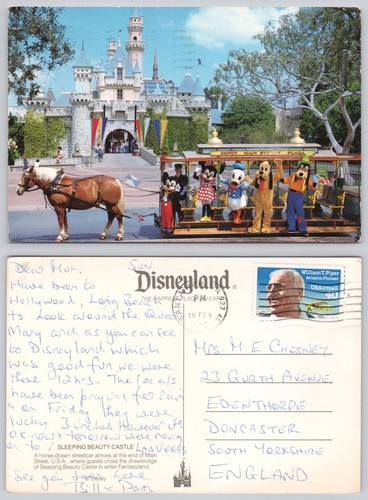 Dear Mum. SUN
Have been to
Hollywood, Long Beach
to Look around the Queen
Mary and as you can see
to Disneyland which
was good fun we were
there 12 hrs. The locals
have been praying for rain
on Friday they were
lucky 3 inches However its
O.K now tomorrow were moving
on to Las Vegas
See you
love
Disneyland
SANTA
PM
18 FEB
William T. Piper
Aviation Pioneer
USAirmail
40
MRS. M E CHESNEY
23 GURTH AVENUE
EDENTHORPE
DONCASTER
SOUTH YORKSHIRE
ENGLAND.
SLEEPING BEAUTY CASTLE
A horse-drawn streetcar arrives at the end of Main
Street, U.S.A., where guests cross the drawbridge
of Sleeping Beauty Castle to enter Fantasyland.